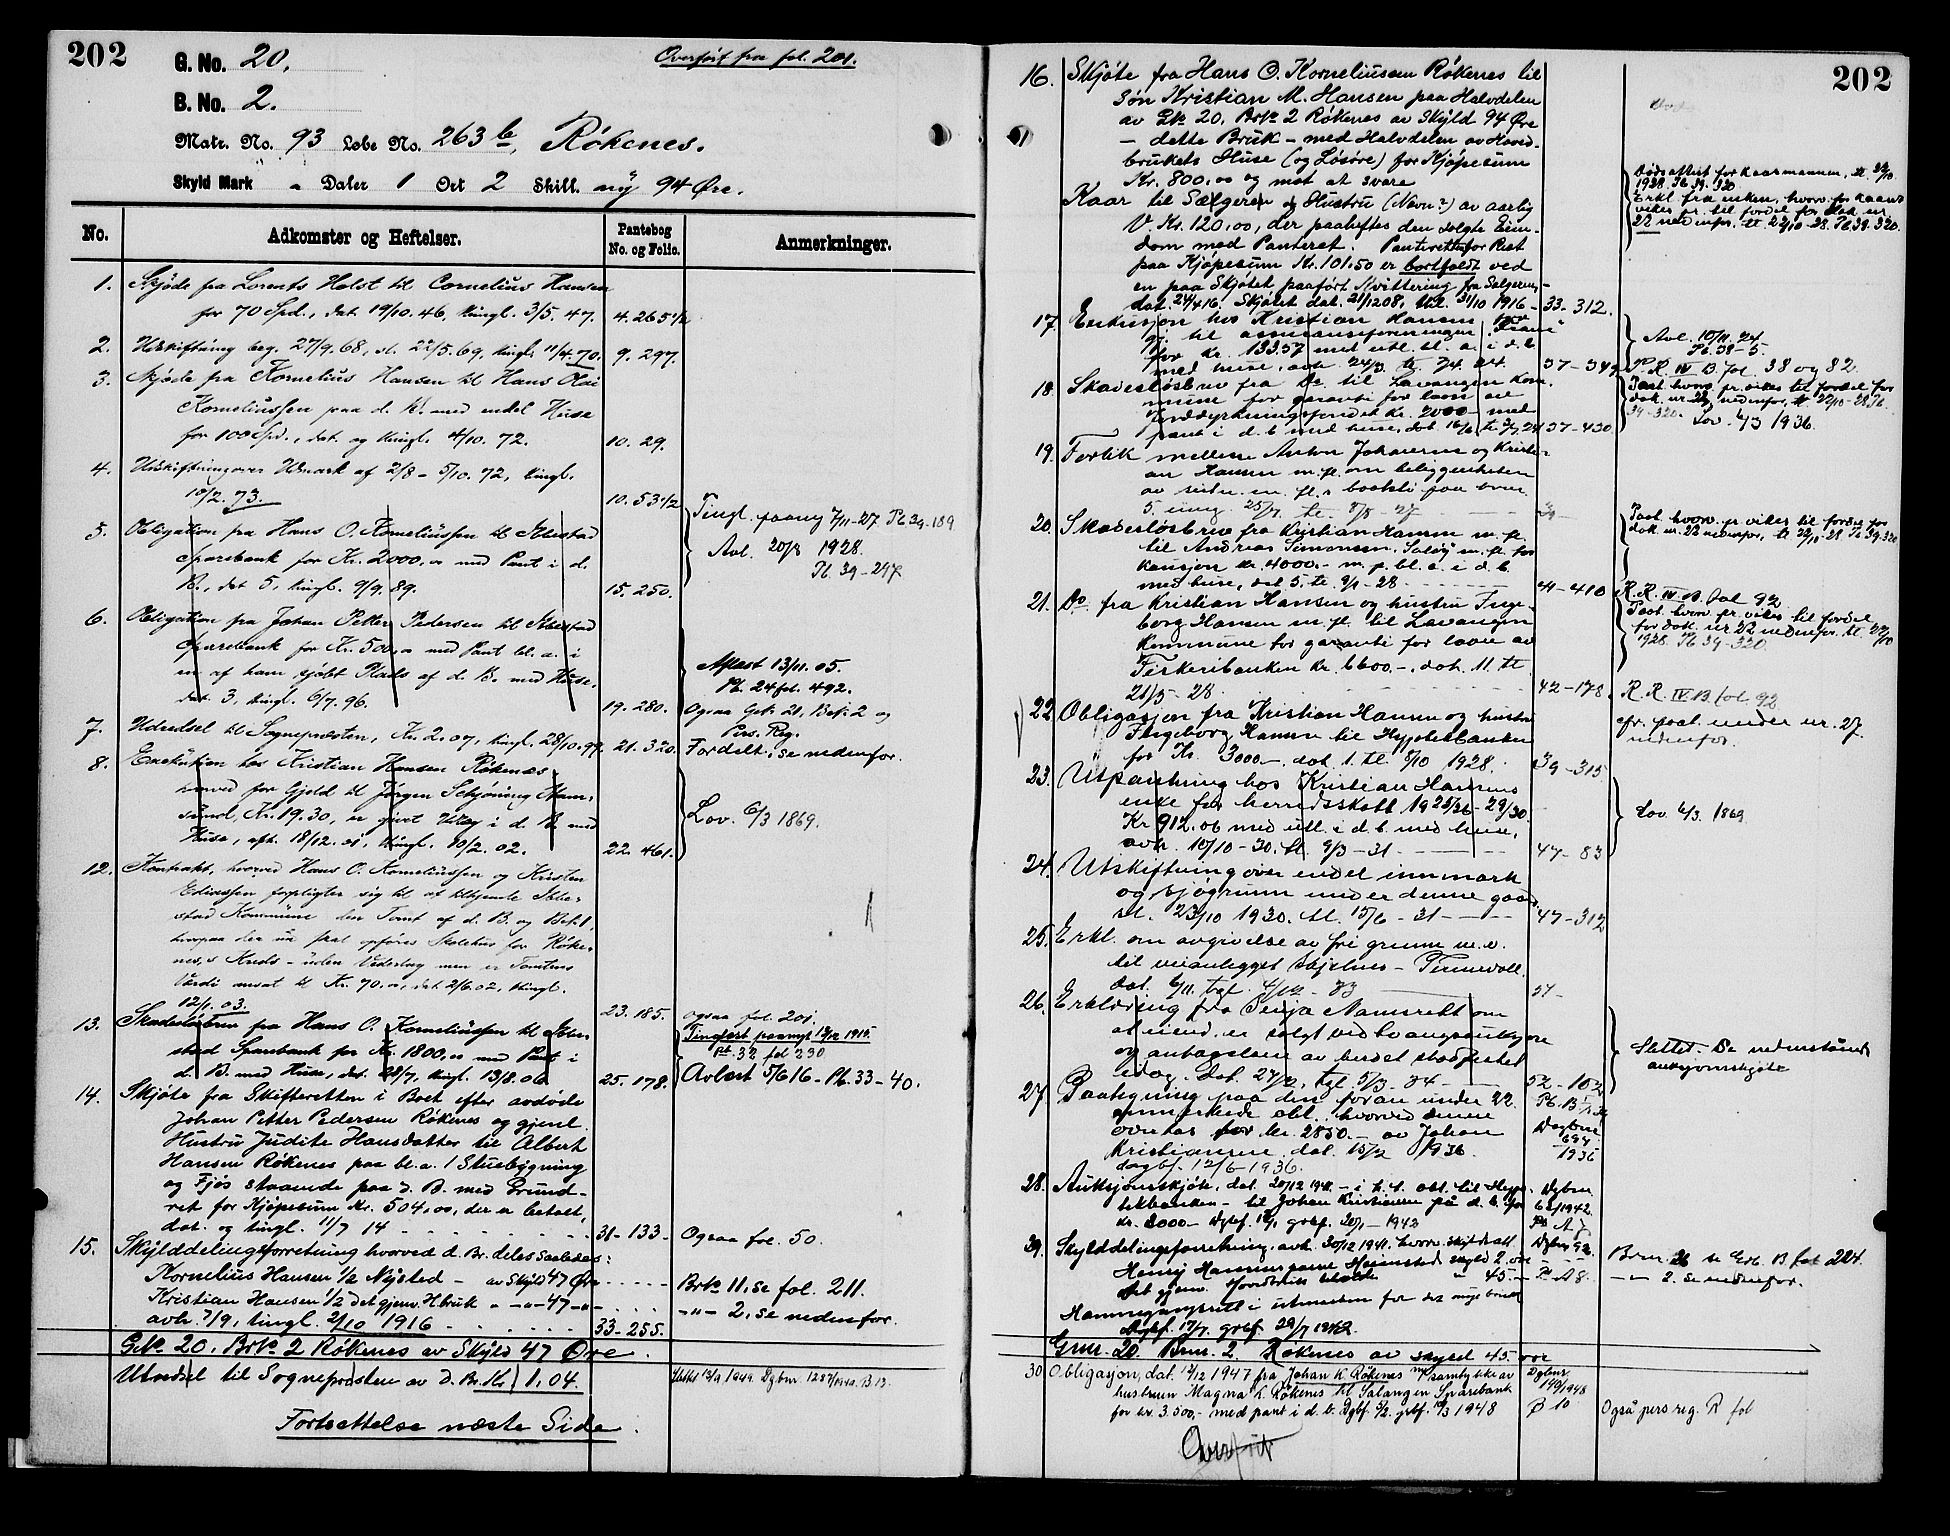 202
G. No. 20.
Overført fra fol. 201.
B. No. 2.
Matr. No. 93 Løbe No. 263 b, Røkenes.
Skyld Mark " Daler 1 Ort 2 Skill. ny 94 Øre.
No. Adkomster og Heftelser. Pantebog No. og Folio. Anmerkninger.
1. Skjøde fra Lorents Holst til Cornelius Hansen
for 70 Spd., dat. 19/10. 46, tingl. 3/5. 47. 4. 265 1/2
2. Udskiftning beg. 27/9. 68, sl. 22/5. 69, tingl. 11/4. 70. 9. 297.
3. Skjøde fra Kornelius Hansen til Hans Olai
Korneliussen paa d. B. med endel Huse
for 100 Spd., dat. og tingl. 4/10. 72. 10. 29.
4. Udskiftning over Udmark af 2/8 - 5/10. 72, tingl.
10/2. 73. 10. 53 1/2
5. Obligation fra Hans O. Korneliussen til Ibestad
Sparebank for Kr. 2000,00 med Pant i d.
B., dat. 5, tingl. 9/9. 89. 15. 250.
Tingl. paany 7/11-27. Pb. 39-189
Avl. 20/8 1928.
Pb. 39-247
6. Obligation fra Johan Petter Pedersen til Ibestad
Sparebank for Kr. 500,00 med Pant bl. a. i
en af ham kjøbt Plads af d. B. med Huse,
dat. 3, tingl. 6/7. 96. 19. 280.
Aflæst 13/11. 05.
Pb. 24 fol. 492.
Ogsaa Gr. 21, Br. 2 og
Pers. Reg.
7. Udredsel til Sognepresten, Kr. 2.07, tingl. 28/10. 99. 21. 320. Fordelt, se nedenfor.
8. Exekution hos Kristian Hansen Røkenæs
hvorved for Gjeld til Jørgen Schjøning Ham-
sund, Kr. 19.30, er givet Udlæg i d. B. med
Huse, afh. 18/12. 01, tingl. 10/2. 02. 22. 461.
Lov. 6/3 1869.
12. Kontrakt, hvorved Hans O. Korneliussen og Kristen
Ediassen forpligter sig til at tilhjemle Ibe-
stad Kommune den Tomt af d. B. og Br. 1,
hvorpaa der nu skal opføres Skolehus for Røke-
nes's Kreds - uden Vederlag men er Tomtens
Værdi ansat til Kr. 70.00, dat. 2/6. 02, tingl.
12/1. 03. 23. 185. ogsaa fol. 201.
13. Skadesløsbrev fra Hans O. Korneliussen til Ibe-
stad Sparebank for Kr. 1800,00 med Pant i
d. B. med Huse, dat. 28/7, tingl. 13/8. 06. 25. 178.
Tinglæst paanyt 13/12 1915.
Pb. 32 fol 290
Avlæst 5/6 16 - Pb. 33 - 40.
14. Skjøte fra Skifteretten i Boet efter avdøde
Johan Petter Pedersen Røkenes og gjenl.
Hustru Judite Hansdatter til Albert
Hansen Røkenes paa bl. a. 1 Stuebygning
og Fjøs staaende paa d. B. med Grund-
ret for Kjøpesum Kr. 504,00, der er betalt,
dat. og tingl. 11/7 14 31-133. Ogsaa fol. 50.
15. Skylddelingsforretning hvorved d. Br. deles saaledes:
Kornelius Hansen 1/2 Nysted - av Skyld 47 Øre Brk. 11, se fol. 211.
Kristian Hansen 1/2 det gjenv. H.bruk " -"- 47 -"- -"- 2, se nedenfor.
avh. 7/9, tingl. 2/10 1916 33-255.
Gk. 20, Brk. 2 Røkenes av Skyld 47 Øre.
Utredsel til Sognepresten av d. Br. Kr. 1,04. Dgbnr.
Fortsættelse næste Side.
202
16. Skjøte fra Hans O. Korneliussen Røkenes til
Søn Kristian M. Hansen paa Halvdelen
av Gk. 20, Brk. 2 Røkenes av Skyld 94 Øre
- dette Bruk - med Halvdelen av Hoved-
brukets Huse (og Løsøre) for Kjøpesum
Kr. 800,00 og mot at svare
Kaar til Sælgeren og Hustru (Navn?) av aarlig
V. Kr. 120,00, der paaheftes den solgte Eien-
dom med Panteret. Panteretten for Rest
paa Kjøpesum Kr. 101.50 er bortfaldt ved
en paa Skjøtet paaført Kvittering fra Sælgeren,
dat. 24/4 16. Skjøtet dat. 21/12 08, tl. 31/10 1916 - 33-312.
Dødsattest for kaarmannen, tl. 22/10
1928. Pb. 39-320
Erkl. fra enken, hvorv. for kaaret
vikes pr. til fordel for dok. nr.
22 nedenfor, tl. 22/10-28. Pb. 39-320.
17. Exekusjon hos Kristian Hansen
gj. til assuranseforeningen
for kr. 133.57 med utl. bl. a. i d. b.
med huse, avh. 24/3 tl. 7/4 24. 37-349
Avl. 10/11. 24
Pb. 38-5.
P. R. IV B. fol. 38 og 82
18. Skadesløsbrev fra Do til Lavangen Kom-
mune for garanti for laan av
Jorddyrkningsfondet kr. 2000 - med
pant i d. b. med huse, 37-430
Paat. hvorv. pr. vikes til fordel for
dok. nr. 22 nedenfor, tl. 22/10-28. Pb.
39-320. Lov. 6/3 1936.
19. Forlik mellem Anton Johansen og Kristi-
an Hansen m. fl. om beliggenheten
av
tl. 8/8-27
20. Skadesløsbrev fra Kristian Hansen m. fl.
til Andreas Simonsen, m. fl. for
kausjon kr. 4000.- m. p. bl. a. i d. b.
med huse, dat. 5. tl. 9/1-28 41-410
Paat. hvorv. pr. vikes til fordel for
dok. nr. 22 nedenfor, tl. 22/10-28 Pb. 39-320
R. R. IV B. fol. 92
21. Do. fra Kristian Hansen og hustru Inge-
borg Hansen m. fl. til Lavangen
Kommune for garanti for laan av
Fiskeribanken kr. 6600.-, dat. 11. tl.
21/5-28. 42-178.
Paat. hvorv. pr. vikes til fordel
for dok. nr 22 nedenfor, tl. 22/10
1928. Pb. 39-320.
R. R. IV B. fol. 92
22. Obligasjon fra Kristian Hansen og hustru
Ingeborg Hansen til Hypotekbanken
for Kr. 3000.-, dat. 1. tl. 8/10 1928. 39-315
cfr. paat. under nr. 27
nedenfor.
23. Utpantning hos Kristian Hansens
enke for herredsskatt 1925/26 - 29/30
Kr. 912.06 med utl. i d. b. med huse,
avh. 10/10-30. tl. 9/3-31 47-83
Lov 6/3. 1869
24. Utskiftning over endel innmark
og sjøgrunn under denne gaard.
sl. 23/10 1930. tl. 15/6-31 47-312
25. Erkl. om avgivelse av fri grunn m. v.
til veianlegget Skjelnes - Tennevoll.
dat. 6/11. tgl. 4/12-33 51-
26. Erklæring fra Senja Namsrett om
at eiend. er solgt ved tvangsauksjon
og antagelsen av budet stadfestet
idag. dat. 27/2, tgl. 5/3-34 52-102
Slettet. Se nedenstående
auksjonsskjøte
27. Paategning paa den foran under 22.
anmerkede obl. hvorved denne
overtas for kr. 2850.- av Johan
Kristiansen. dat. 15/2 1936.
dagbf. 12/6-1936.
Dagbnr.
694
1936
28. Auksjonsskjøte, dat. 20/12 1941 - i h. t. obl. til Hypo-
tekbanken - til Johan Kristiansen på d. b. for
kr. 2000 - Dgbf. grbf. 20/1-1942
Dgbnr.
62/1942.
29. Skylddelingsforretning, avh. 30/12 1941, hvorv. skyldsatt
Dgbnr.
Pb. A 8.
Bnr. 26 se Grb. B fol 224.
-"- 2. Se nedenfor.
Hamnegangsrett i utmarken for det nye bruk
Dgbf. 17/7. grbf. 29/7 1942.
Gnr. 20 Bnr. 2. Røkenes av skyld 45 øre
30 Obligasjon, dat. 12/12 1947 fra Johan K. Røkenes m/samtykke av
hustruen Magna K. Røkenes til Salangen Sparebank
for kr. 3.500,- med pant i d. b. Dgbf. 5/2. grbf. 10/3 1948
Dgbnr
140/1948
P 10
Også pers reg. R fol
Overført